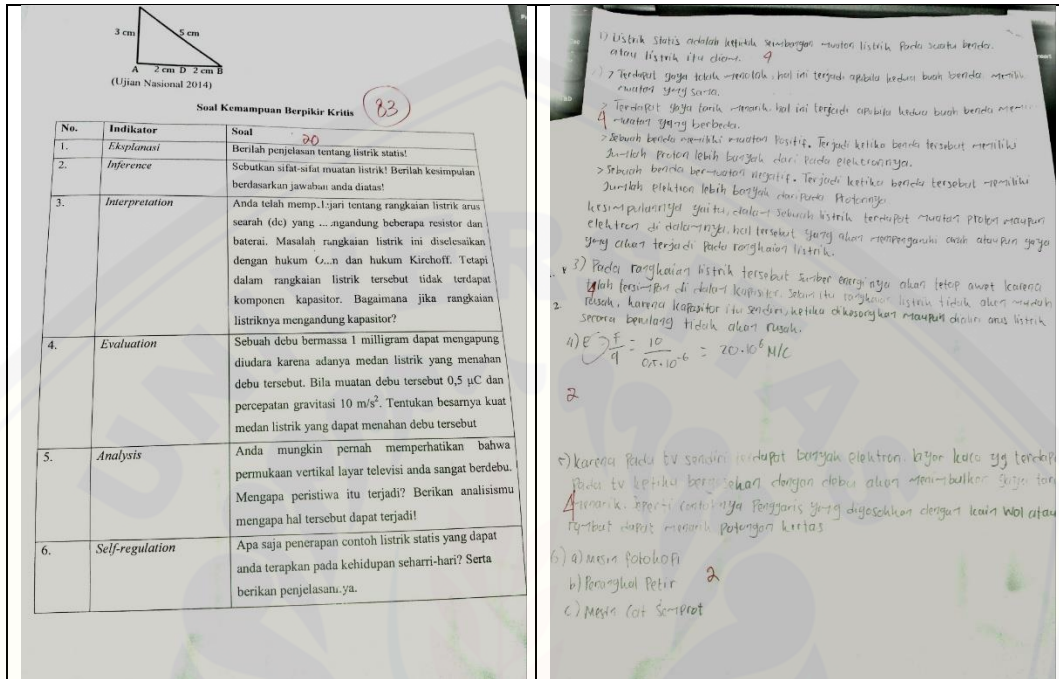 3 cm
5 cm
A 2 cm D 2 cm B
(Ujian Nasional 2014)
Soal Kemampuan Berpikir Kritis
83
No. Indikator Soal
20
1. Eksplanasi Berilah penjelasan tentang listrik statis!
2. Inference Sebutkan sifat-sifat muatan listrik! Berilah kesimpulan
berdasarkan jawaban anda diatas!
3. Interpretation Anda telah mempelajari tentang rangkaian listrik arus
searah (dc) yang ngandung beberapa resistor dan
baterai. Masalah rangkaian listrik ini diselesaikan
dengan hukum dan hukum Kirchoff. Tetapi
dalam rangkaian listrik tersebut tidak terdapat
komponen kapasitor. Bagaimana jika rangkaian
listriknya mengandung kapasitor?
4. Evaluation Sebuah debu bermassa 1 milligram dapat mengapung
diudara karena adanya medan listrik yang menahan
debu tersebut. Bila muatan debu tersebut 0,5 μC dan
percepatan gravitasi 10 m/s². Tentukan besarnya kuat
medan listrik yang dapat menahan debu tersebut
5. Analysis Anda mungkin pernah memperhatikan bahwa
permukaan vertikal layar televisi anda sangat berdebu.
Mengapa peristiwa itu terjadi? Berikan analisismu
mengapa hal tersebut dapat terjadi!
6. Self-regulation Apa saja penerapan contoh listrik statis yang dapat
anda terapkan pada kehidupan seharri-hari? Serta
berikan penjelasannya.
1) Listrik statis adalah ketidak seimbangan muatan listrik Pada suatu benda.
atau listrik itu diam. 4
> Terdapat gaya tolak menolak, hal ini terjadi apabila kedua buah benda memiliki
muatan yang sama.
> Terdapat gaya tarik menarik. hal ini terjadi apabila kedua buah benda
4 muatan yang berbeda.
> Sebuah benda memiliki muatan Positif. Terjadi ketika benda tersebut memiliki
Jumlah Proton lebih banyak dari Pada elektronnya.
> Sebuah benda bermuatan negatif. Terjadi ketika benda tersebut memiliki
Jumlah elektron lebih banyak dari pada Protonnya
kesimpulannya yaitu, dalam sebuah listrik terdapat muatan proton maupun
elektron di dalamnya, hal tersebut yang akan mempengaruhi arah ataupun gaya
yang akan terjadi Pada rangkaian listrik.
3) Pada rangkaian listrik tersebut sumber energinya akan tetap awet karena
4 telah tersimpan di dalam kapasitor. Selain itu rangkaian listrik tidak akan mudah
2. rusak, karena kapasitor itu sendiri, ketika dikosongkan maupun dialiri arus listrik
secara berulang tidak akan rusak.
4) E = F/q = 10/0,5.10⁻⁶ = 20.10⁶ N/C
2
5) karena Pada tv sendiri terdapat banyak elektron. layar kaca yg
Pada tv ketika bergesekan dengan debu akan menimbulkan gaya
4 menarik. seperti contohnya Penggaris yang digosokkan dengan kain wol atau
rambut dapat menarik potongan kertas
6) a) Mesin fotokopi
b) Penangkal Petir 2
c) Mesin Cat Semprot